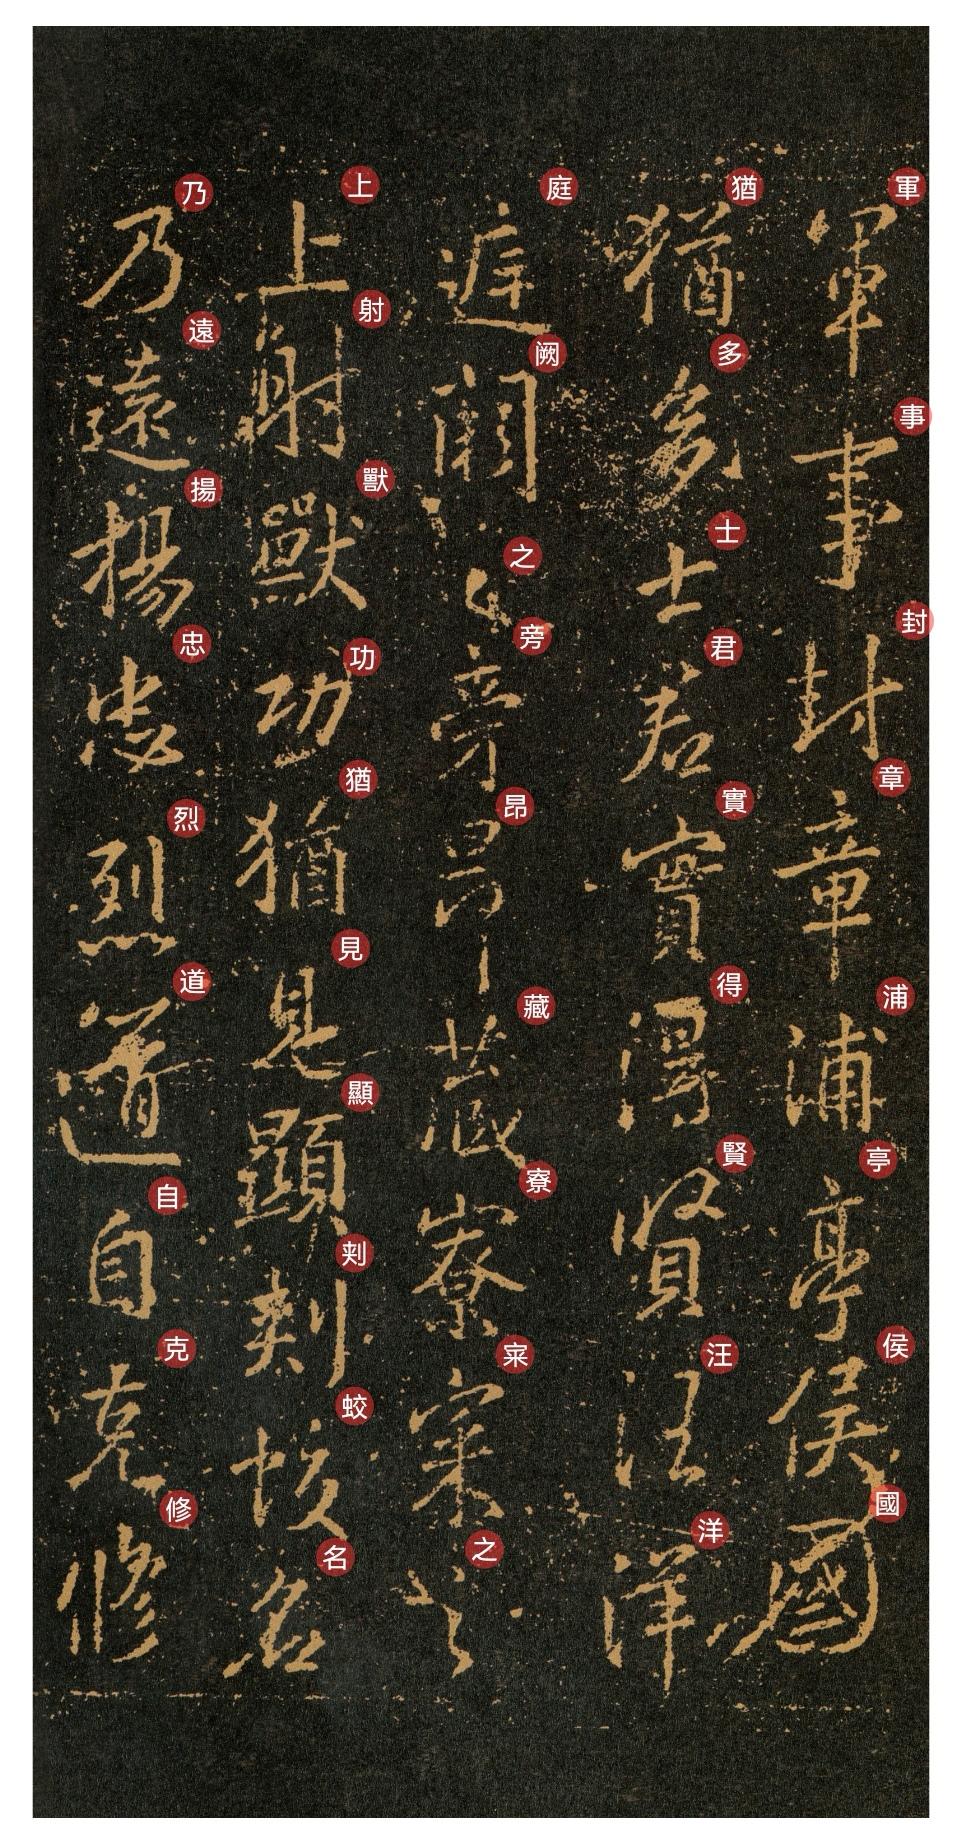 軍事封章浦亭侯國
猶多士君實得賢汪洋
庭阙之旁昂藏寮寀之
上射獸功猶見顯刾蛟名
乃遠揚忠烈道自克修